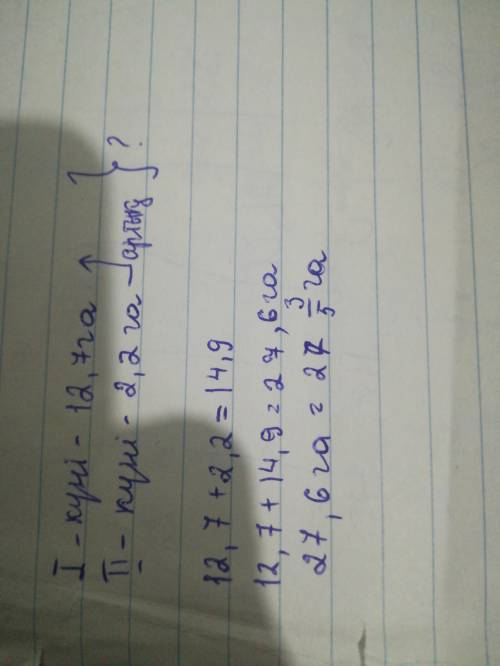 I - күні - 12,7га
II - күні - 2,2га артық } ?
12,7 + 2,2 = 14,9
12,7 + 14,9 = 27,6га
27,6га = 27 3/5 га